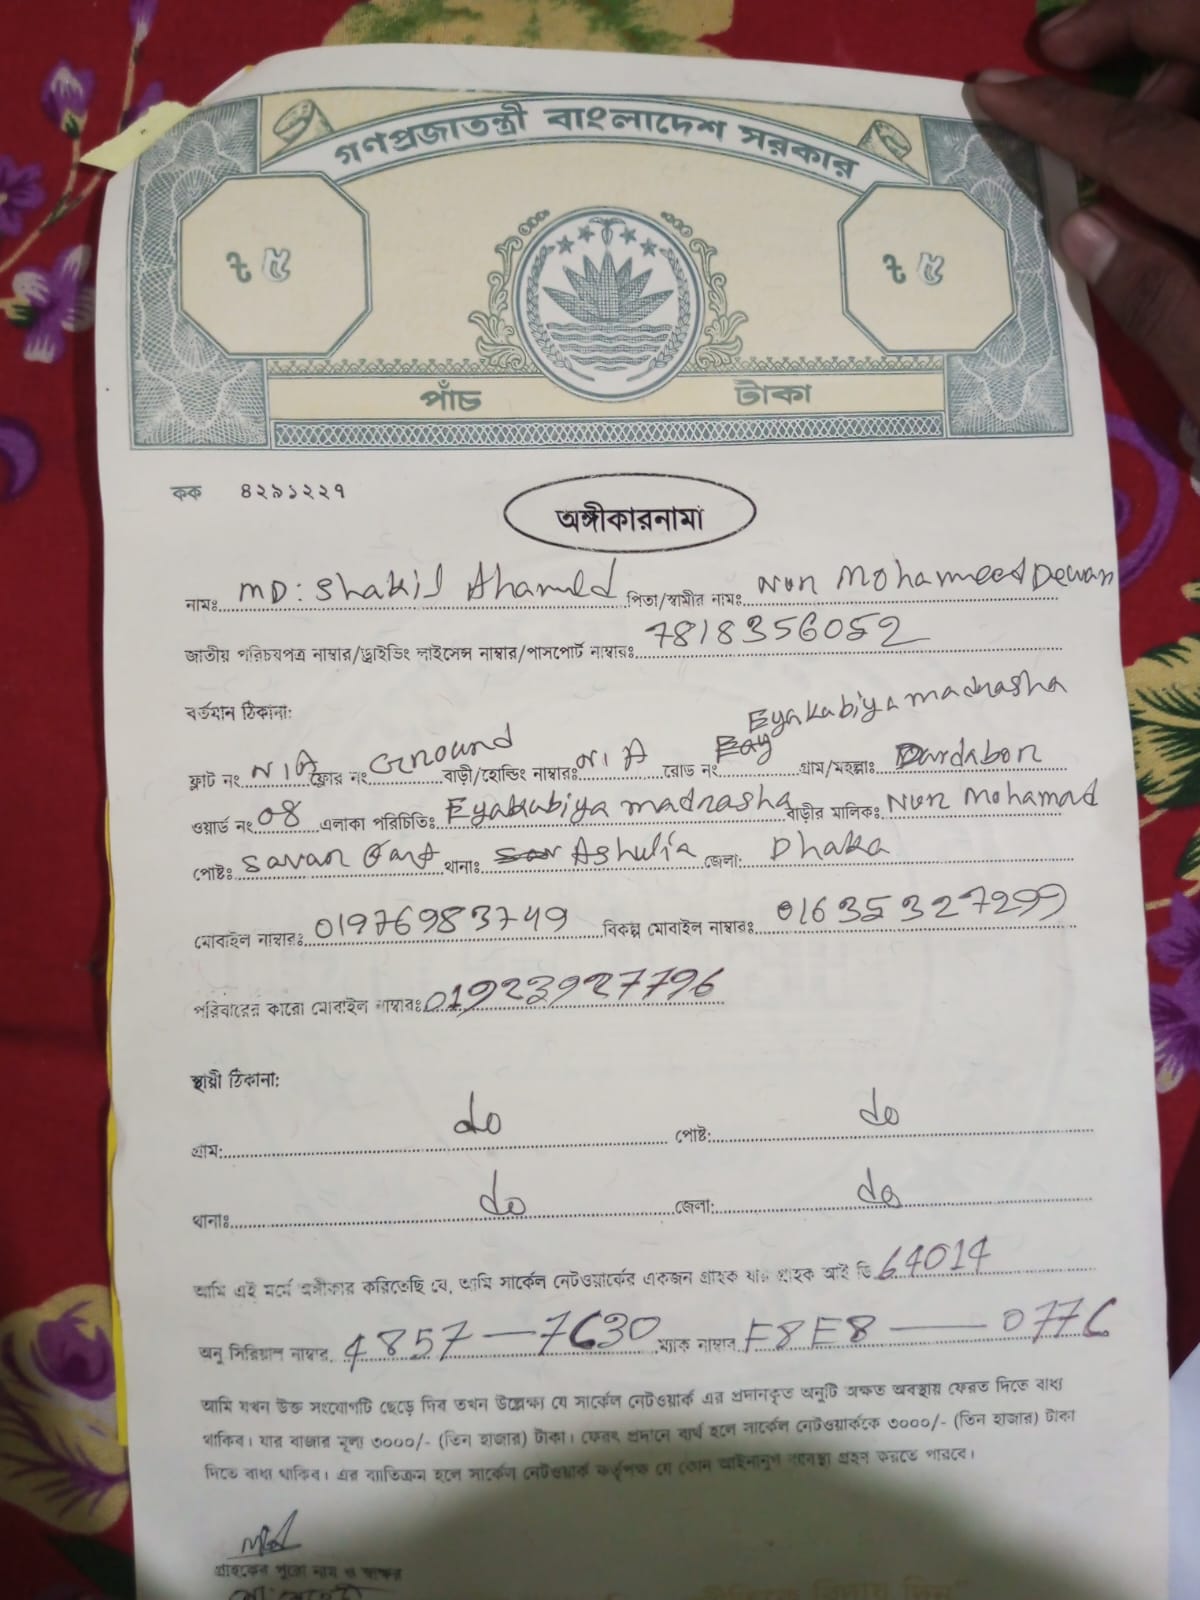 গণপ্রজাতন্ত্রী বাংলাদেশ সরকার
৳ ৫ ৳ ৫
পাঁচ টাকা
কক ৪২৯১২২৭
অঙ্গীকারনামা
নামঃ MD: Shakil Ahamed পিতা/স্বামীর নামঃ Nur Mohammed Dewan
জাতীয় পরিচয়পত্র নাম্বার/ড্রাইভিং লাইসেন্স নাম্বার/পাসপোর্ট নাম্বারঃ 7818356052
বর্তমান ঠিকানা:
ফ্লাট নং N/A ফ্লোর নং Ground বাড়ী/হোল্ডিং নাম্বারঃ N/A রোড নং Eyakubiya madrasha গ্রাম/মহল্লাঃ Dardabor
ওয়ার্ড নং 08 এলাকা পরিচিতিঃ Eyakubiya madrasha বাড়ীর মালিকঃ Nur Mohamad
পোষ্টঃ Savar Cant থানাঃ Ashulia জেলা: Dhaka
মোবাইল নাম্বারঃ 01976983749 বিকল্প মোবাইল নাম্বারঃ 01635327299
পরিবারের কারো মোবাইল নাম্বারঃ 01923927796
স্থায়ী ঠিকানা:
গ্রাম: do পোষ্ট: do
থানাঃ do জেলা: do
আমি এই মর্মে অঙ্গীকার করিতেছি যে, আমি সার্কেল নেটওয়ার্কের একজন গ্রাহক যার গ্রাহক আই ডি 64014
অনু সিরিয়াল নাম্বার, 4857—7630 ম্যাক নাম্বার F8E8 — 077C
আমি যখন উক্ত সংযোগটি ছেড়ে দিব তখন উল্লেক্ষ্য যে সার্কেল নেটওয়ার্ক এর প্রদানকৃত অনুটি অক্ষত অবস্থায় ফেরত দিতে বাধ্য
থাকিব। যার বাজার মূল্য ৩০০০/- (তিন হাজার) টাকা। ফেরৎ প্রদানে ব্যর্থ হলে সার্কেল নেটওয়ার্ককে ৩০০০/- (তিন হাজার) টাকা
দিতে বাধ্য থাকিব। এর ব্যতিক্রম হলে সার্কেল নেটওয়ার্ক কর্তৃপক্ষ যে কোন আইনানুগ ব্যবস্থা গ্রহন করতে পারবে।
গ্রাহকের পুরো নাম ও স্বাক্ষর